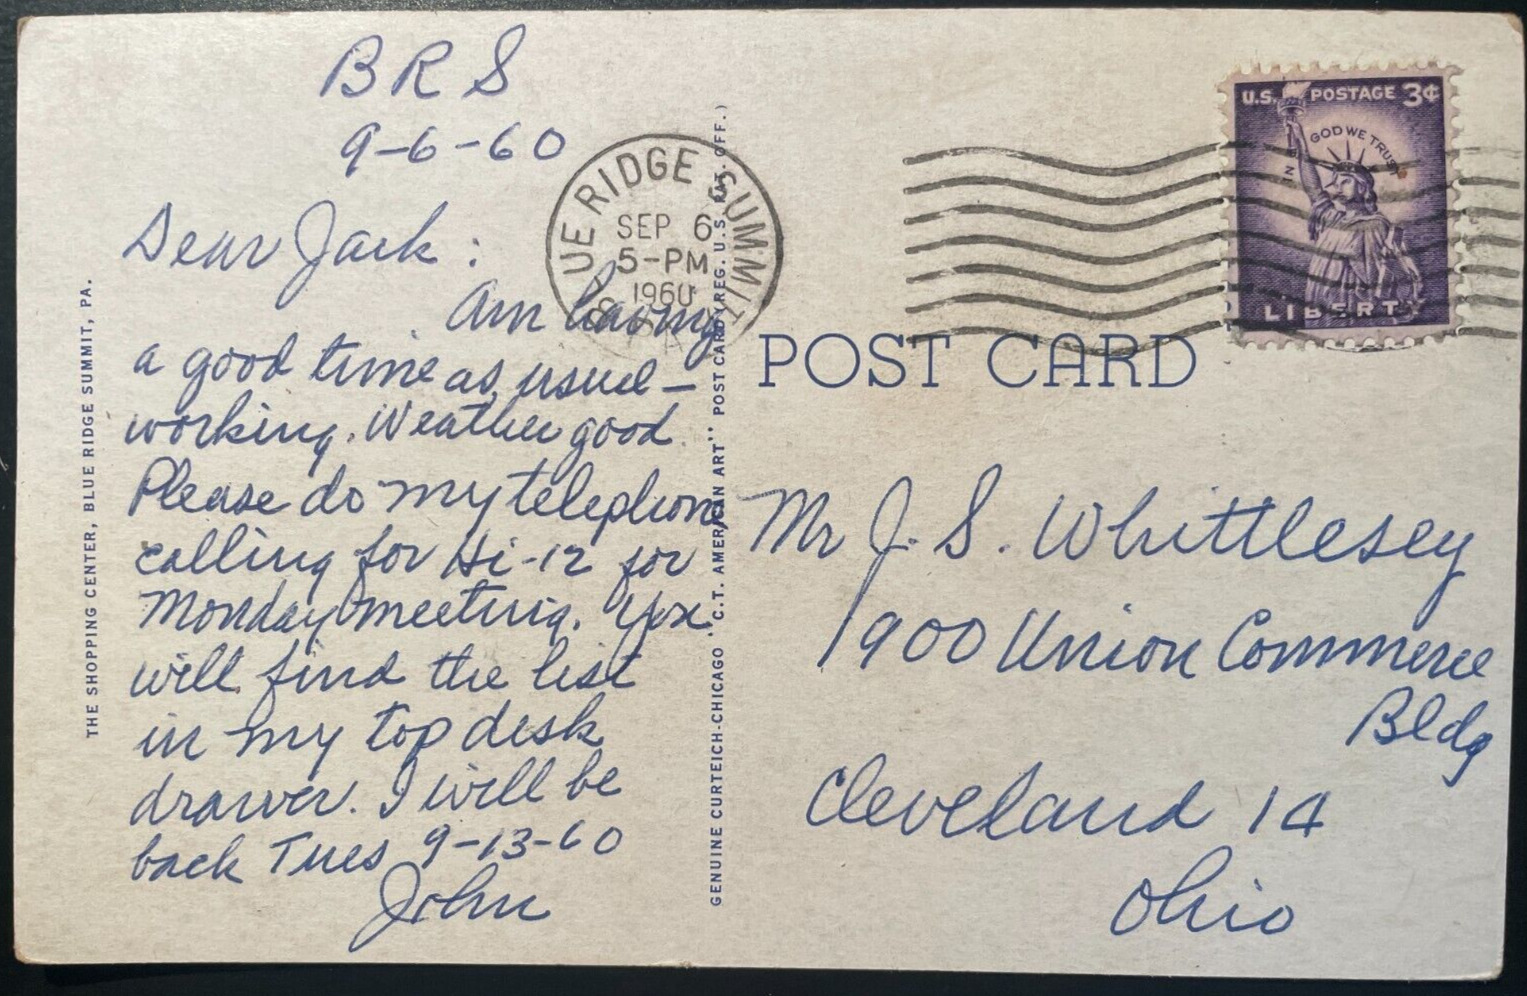 B R S
9-6-60
Dear Jack:
Am having
a good time as usual—
working. Weather good.
Please do my telephone
calling for Hi-12 for
Monday meeting. You
will find the list
in my top desk
drawer. I will be
back Tues 9-13-60
John
THE SHOPPING CENTER, BLUE RIDGE SUMMIT, PA.
BLUE RIDGE SUMMIT
SEP 6
5-PM
1960
PA.
GENUINE CURTEICH-CHICAGO "C.T. AMERICAN ART" POST CARD (REG. U.S. PAT. OFF.)
U.S. POSTAGE 3¢
IN GOD WE TRUST
LIBERTY
POST CARD
Mr J. S. Whittlesey
1900 Union Commerce
Bldg
Cleveland 14
Ohio